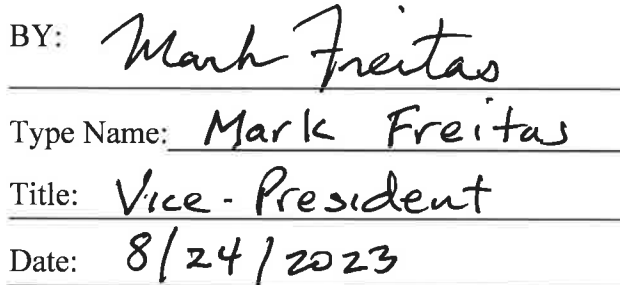 BY: Mark Freitas
Type Name: Mark Freitas
Title: Vice-President
Date: 8/24/2023